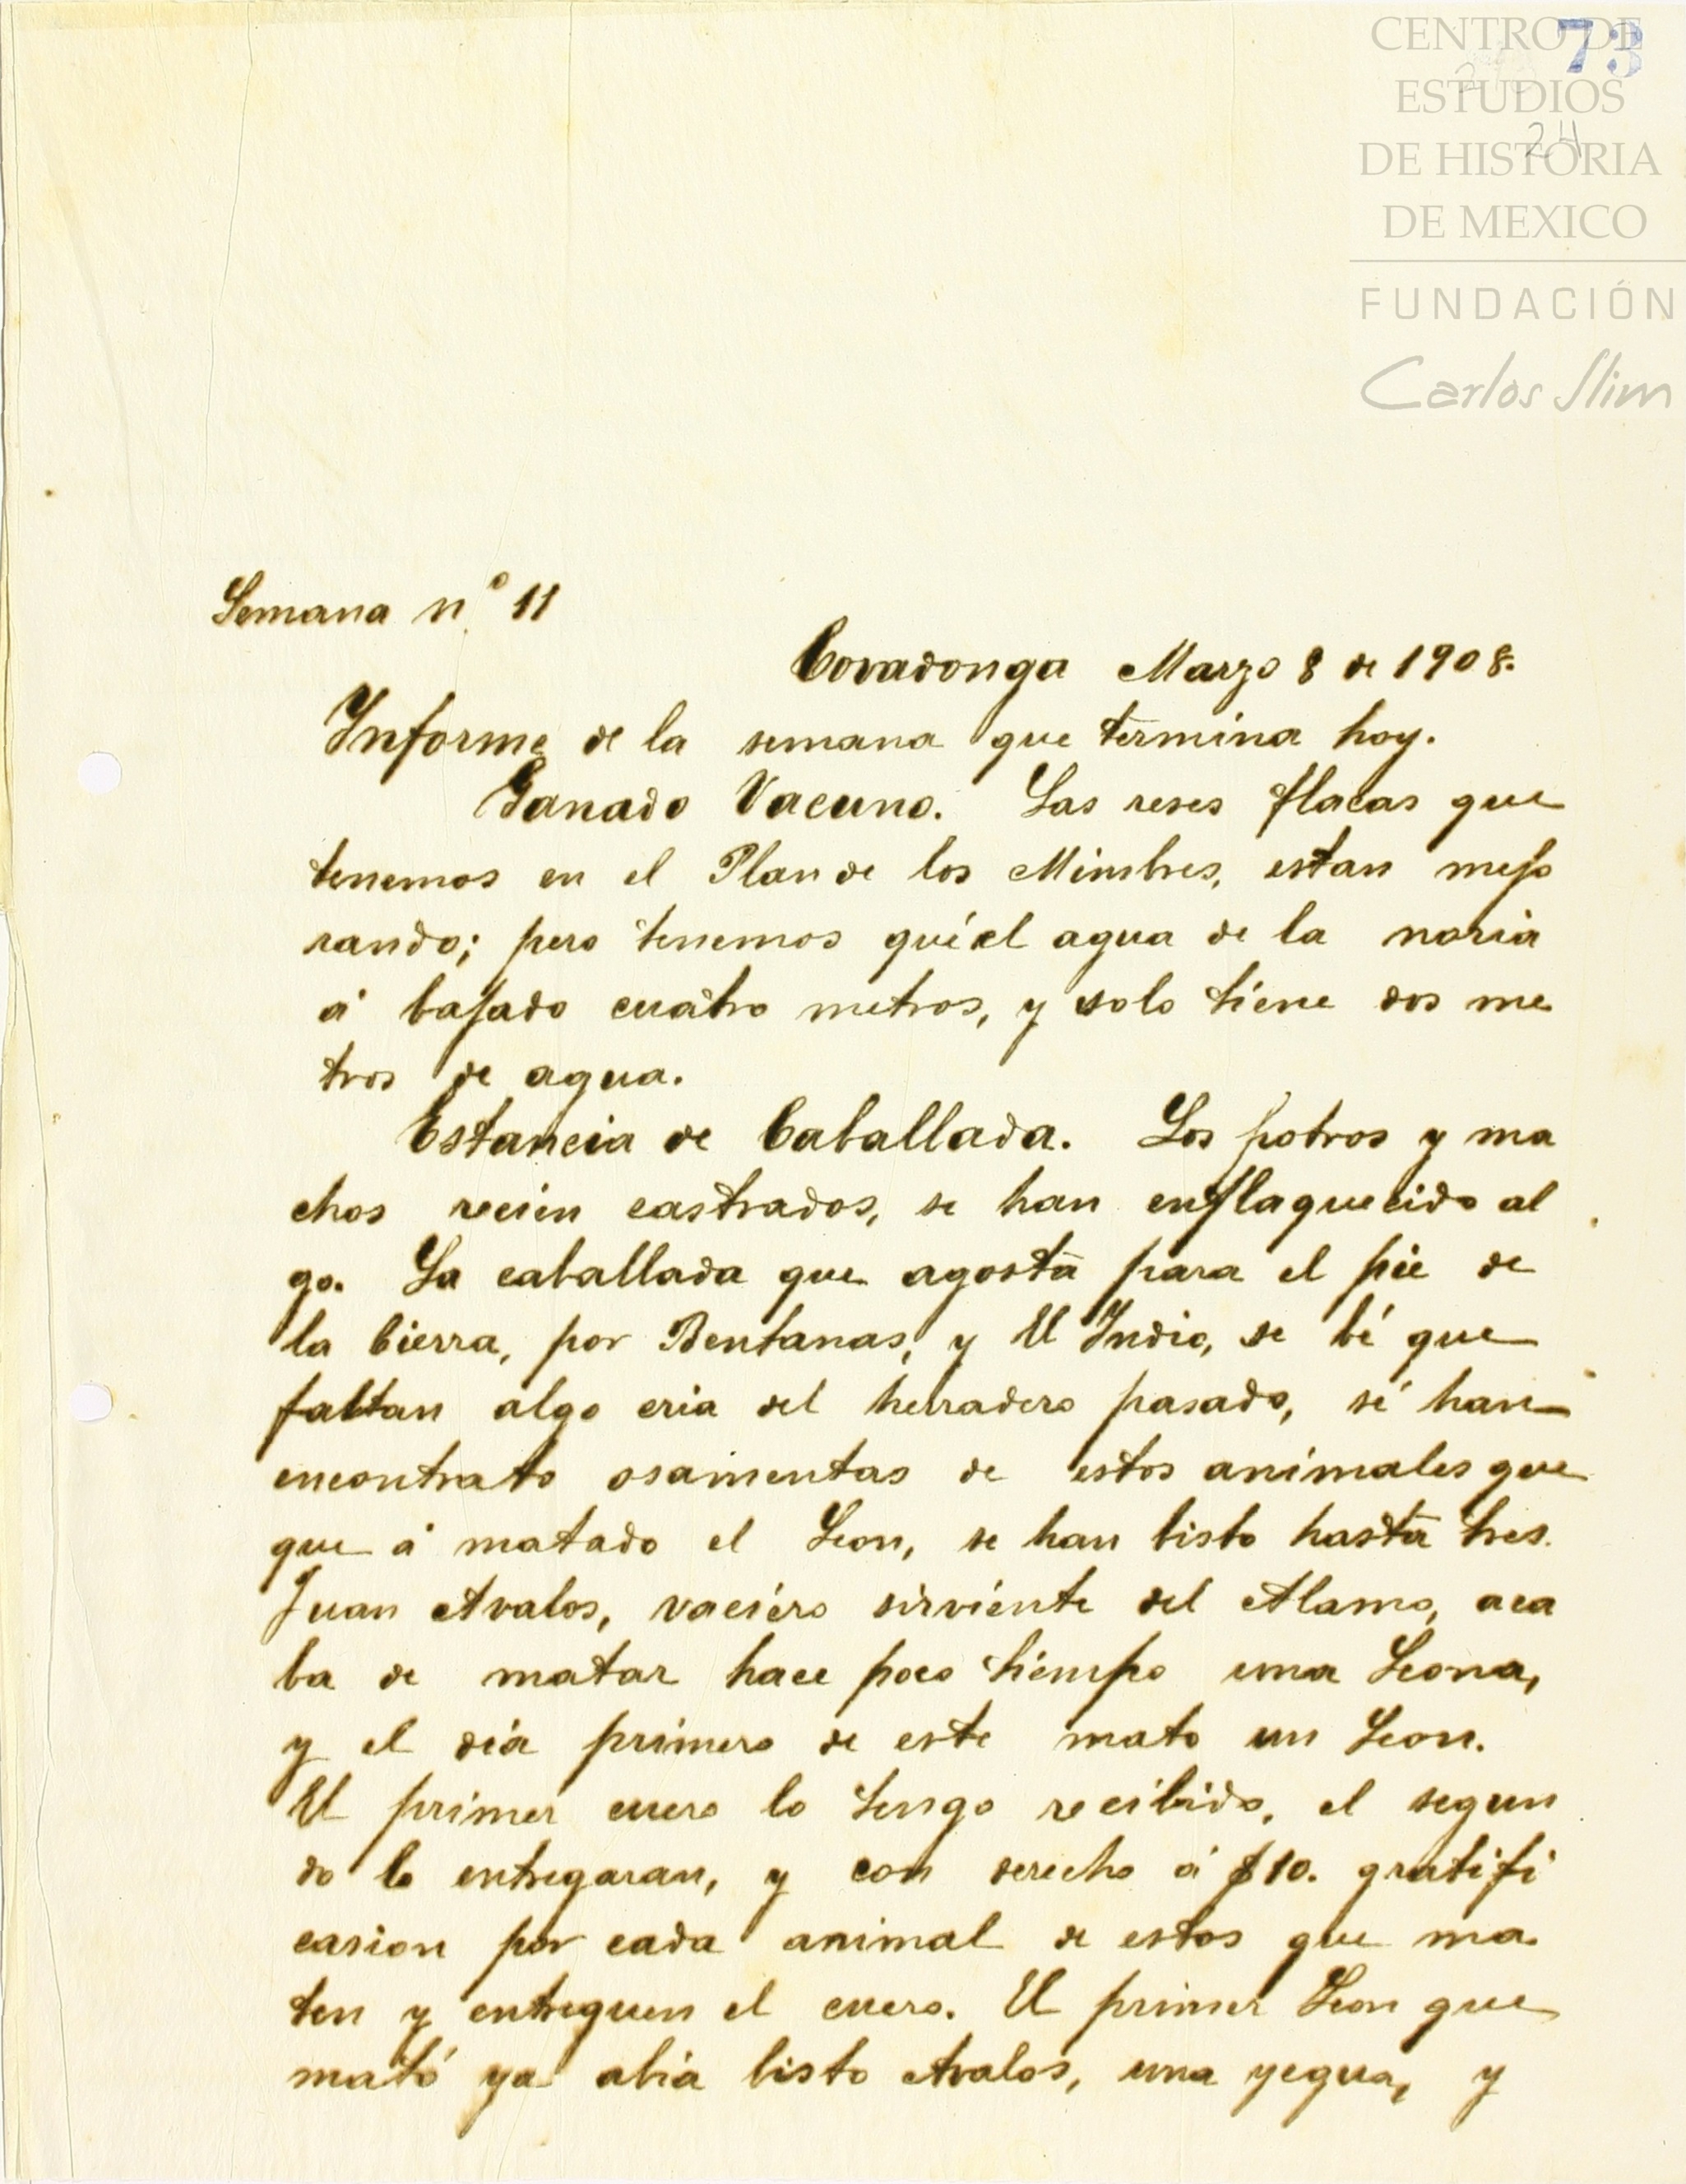 CENTRO DE
ESTUDIOS
DE HISTORIA
DE MEXICO
FUNDACIÓN
Carlos Slim
73
24
Semana nº 11
Covadonga Marzo 8 de 1908.
Informe de la semana que termina hoy.
Ganado Vacuno. Las reses flacas que
tenemos en el Plan de los Mimbres, estan mejo
rando; pero tenemos qué el agua de la noria
á bajado cuatro metros, y solo tiene dos me
tros de agua.
Estancia de Caballada. Los potros y ma
chos recien castrados, se han enflaquecido al
go. La caballada que agosta para el pie de
la Cierra, por Bentanas, y El Indio, se bé que
faltan algo cria del herradero pasado, sé han
encontrato osamentas de estos animales que
que á matado el Leon, se han bisto hasta tres.
Juan Avalos, vaciero sirviente del Alamo, aca
ba de matar hace poco tiempo una Leona,
y el dia primero de este mato un Leon.
El primer cuero lo tengo recibido, el segun
do lo entregaran, y con derecho á $10. gratifi
casion por cada animal de estos que ma
ten y entreguen el cuero. El primer Leon que
mató ya abia bisto Avalos, una yegua, y